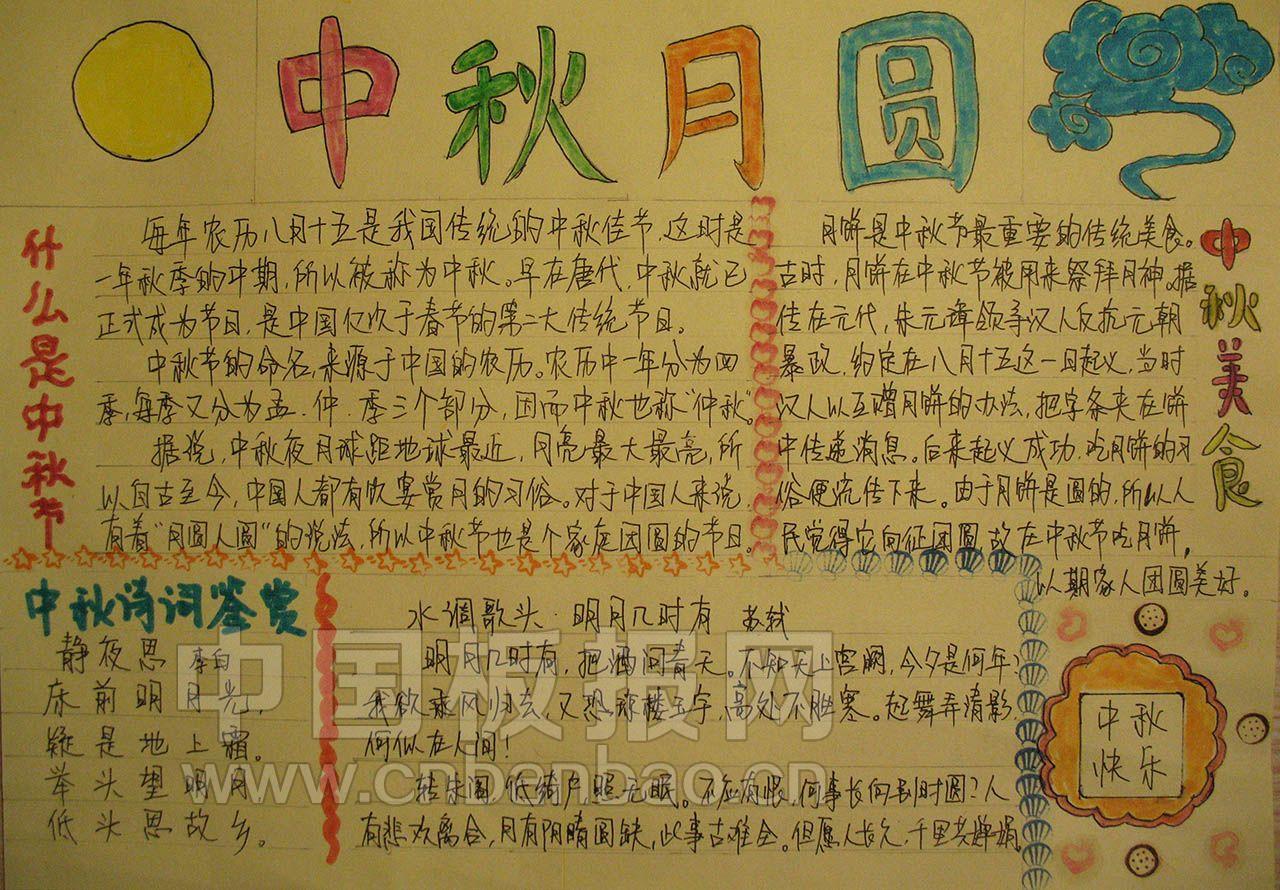 中秋月圆
什么是中秋节
每年农历八月十五是我国传统的中秋佳节,这时是
一年秋季的中期,所以被称为中秋。早在唐代,中秋就已
正式成为节日,是中国仅次于春节的第二大传统节日。
中秋节的命名,来源于中国的农历。农历中一年分为四
季,每季又分为孟.仲.季三个部分,因而中秋也称“仲秋”。
据说,中秋夜月球距地球最近,月亮最大最亮,所
以自古至今,中国人都有饮宴赏月的习俗。对于中国人来说,
有着“月圆人圆”的说法,所以中秋节也是个家庭团圆的节日。
中秋美食
月饼是中秋节最重要的传统美食。
古时,月饼在中秋节被用来祭拜月神。据
传在元代,朱元璋领导汉人反抗元朝
暴政,约定在八月十五这一日起义,当时
汉人以互赠月饼的办法,把字条夹在饼
中传递消息。后来起义成功,吃月饼的习
俗便流传下来。由于月饼是圆的,所以人
民觉得它向征团圆,故在中秋节吃月饼,
以期家人团圆美好。
中秋诗词鉴赏
静夜思 李白
床前明月光,
疑是地上霜。
举头望明月
低头思故乡。
水调歌头·明月几时有 苏轼
明月几时有,把酒问青天。不知天上宫阙,今夕是何年?
我欲乘风归去,又恐琼楼玉宇,高处不胜寒。起舞弄清影,
何似在人间!
转朱阁 低绮户 照无眠。不应有恨,何事长向别时圆?人
有悲欢离合,月有阴晴圆缺,此事古难全。但愿人长久,千里共婵娟。
中秋
快乐
中国板报网
www.cnbanbao.cn